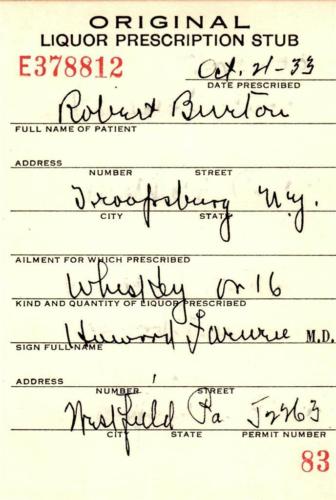 ORIGINAL
LIQUOR PRESCRIPTION STUB
E378812
Oct. 21-33
DATE PRESCRIBED
Robert Burton
FULL NAME OF PATIENT
ADDRESS
NUMBER STREET
Troopsburg N.Y.
CITY STATE
AILMENT FOR WHICH PRESCRIBED
Whiskey on 16
KIND AND QUANTITY OF LIQUOR PRESCRIBED
Howard M.D.
SIGN FULL NAME
ADDRESS
NUMBER STREET
Westfield Pa J2263
CITY STATE PERMIT NUMBER
83